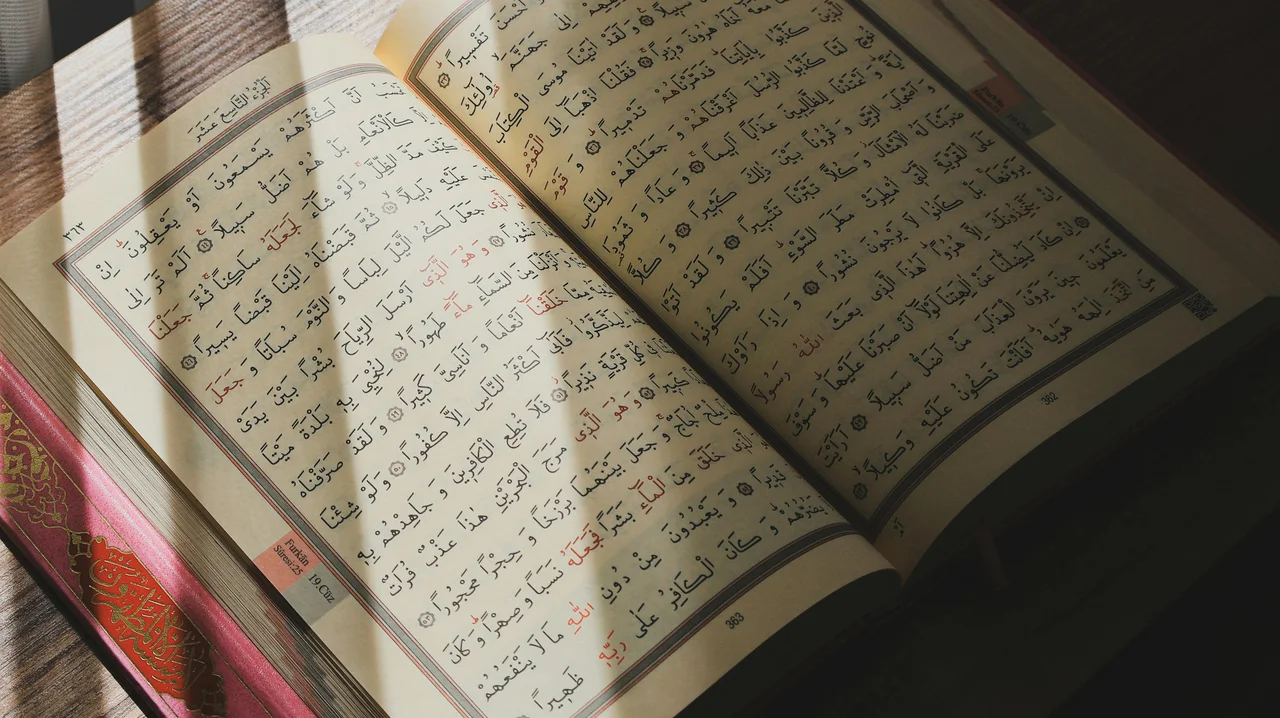 وَاَحْسَنَ تَفْسِيرًا ﴿٣٣﴾
اِلٰى جَهَنَّمَ اُولٰئِكَ
سَبِيلًا ﴿٣٤﴾ وَلَقَدْ اٰتَيْنَا مُوسَى الْكِتَابَ
مَعَهُ اَخَاهُ هٰرُونَ وَزِيرًا ﴿٣٥﴾ فَقُلْنَا اذْهَبَا اِلَى الْقَوْمِ
الَّذِينَ كَذَّبُوا بِاٰيَاتِنَا فَدَمَّرْنَاهُمْ تَدْمِيرًا ﴿٣٦﴾ وَقَوْمَ
نُوحٍ لَمَّا كَذَّبُوا الرُّسُلَ اَغْرَقْنَاهُمْ وَجَعَلْنَاهُمْ لِلنَّاسِ
اٰيَةً وَاَعْتَدْنَا لِلظَّالِمِينَ عَذَابًا اَلِيمًا ﴿٣٧﴾ وَعَادًا وَثَمُودَا
وَاَصْحَابَ الرَّسِّ وَقُرُونًا بَيْنَ ذٰلِكَ كَثِيرًا ﴿٣٨﴾ وَكُلًّا
ضَرَبْنَا لَهُ الْاَمْثَالَ وَكُلًّا تَبَّرْنَا تَتْبِيرًا ﴿٣٩﴾ وَلَقَدْ اَتَوْا
عَلَى الْقَرْيَةِ الَّتِي اُمْطِرَتْ مَطَرَ السَّوْءِ اَفَلَمْ يَكُونُوا
يَرَوْنَهَا بَلْ كَانُوا لَا يَرْجُونَ نُشُورًا ﴿٤٠﴾ وَاِذَا رَاَوْكَ
اِنْ يَتَّخِذُونَكَ اِلَّا هُزُوًا اَهٰذَا الَّذِي بَعَثَ اللّٰهُ رَسُولًا ﴿٤١﴾
اِنْ كَادَ لَيُضِلُّنَا عَنْ اٰلِهَتِنَا لَوْلَا اَنْ صَبَرْنَا عَلَيْهَا وَسَوْفَ
يَعْلَمُونَ حِينَ يَرَوْنَ الْعَذَابَ مَنْ اَضَلُّ سَبِيلًا ﴿٤٢﴾ اَرَاَيْتَ
مَنِ اتَّخَذَ اِلٰهَهُ هَوٰيهُ اَفَاَنْتَ تَكُونُ عَلَيْهِ وَكِيلًا ﴿٤٣﴾
362
اَلْجُزْءُ التَّاسِعُ عَشَرَ
٣٦٣
تَحْسَبُ اَنَّ اَكْثَرَهُمْ يَسْمَعُونَ اَوْ يَعْقِلُونَ اِنْ
اِلَّا كَالْاَنْعَامِ بَلْ هُمْ اَضَلُّ سَبِيلًا ﴿٤٤﴾ اَلَمْ تَرَ اِلٰى
كَيْفَ مَدَّ الظِّلَّ وَلَوْ شَاءَ لَجَعَلَهُ سَاكِنًا ثُمَّ جَعَلْنَا
عَلَيْهِ دَلِيلًا ﴿٤٥﴾ ثُمَّ قَبَضْنَاهُ اِلَيْنَا قَبْضًا يَسِيرًا ﴿٤٦﴾
الَّذِي جَعَلَ لَكُمُ الَّيْلَ لِبَاسًا وَالنَّوْمَ سُبَاتًا وَجَعَلَ
نُشُورًا ﴿٤٧﴾ وَهُوَ الَّذِي اَرْسَلَ الرِّيَاحَ بُشْرًا بَيْنَ يَدَيْ
وَاَنْزَلْنَا مِنَ السَّمَاءِ مَاءً طَهُورًا ﴿٤٨﴾ لِنُحْيِيَ بِهِ بَلْدَةً مَيْتًا
مِمَّا خَلَقْنَا اَنْعَامًا وَاَنَاسِيَّ كَثِيرًا ﴿٤٩﴾ وَلَقَدْ صَرَّفْنَاهُ
لِيَذَّكَّرُوا فَاَبٰى اَكْثَرُ النَّاسِ اِلَّا كُفُورًا ﴿٥٠﴾ وَلَوْ شِئْنَا
كُلِّ قَرْيَةٍ نَذِيرًا ﴿٥١﴾ فَلَا تُطِعِ الْكَافِرِينَ وَجَاهِدْهُمْ بِهِ
كَبِيرًا ﴿٥٢﴾ وَهُوَ الَّذِي مَرَجَ الْبَحْرَيْنِ هٰذَا عَذْبٌ فُرَاتٌ
مِلْحٌ اُجَاجٌ وَجَعَلَ بَيْنَهُمَا بَرْزَخًا وَحِجْرًا مَحْجُورًا ﴿٥٣﴾
الَّذِي خَلَقَ مِنَ الْمَاءِ بَشَرًا فَجَعَلَهُ نَسَبًا وَصِهْرًا وَكَانَ
قَدِيرًا ﴿٥٤﴾ وَيَعْبُدُونَ مِنْ دُونِ اللّٰهِ مَا لَا يَنْفَعُهُمْ
يَضُرُّهُمْ وَكَانَ الْكَافِرُ عَلٰى رَبِّهِ ظَهِيرًا
Furkân
Sûresi:25
19.Cüz
363